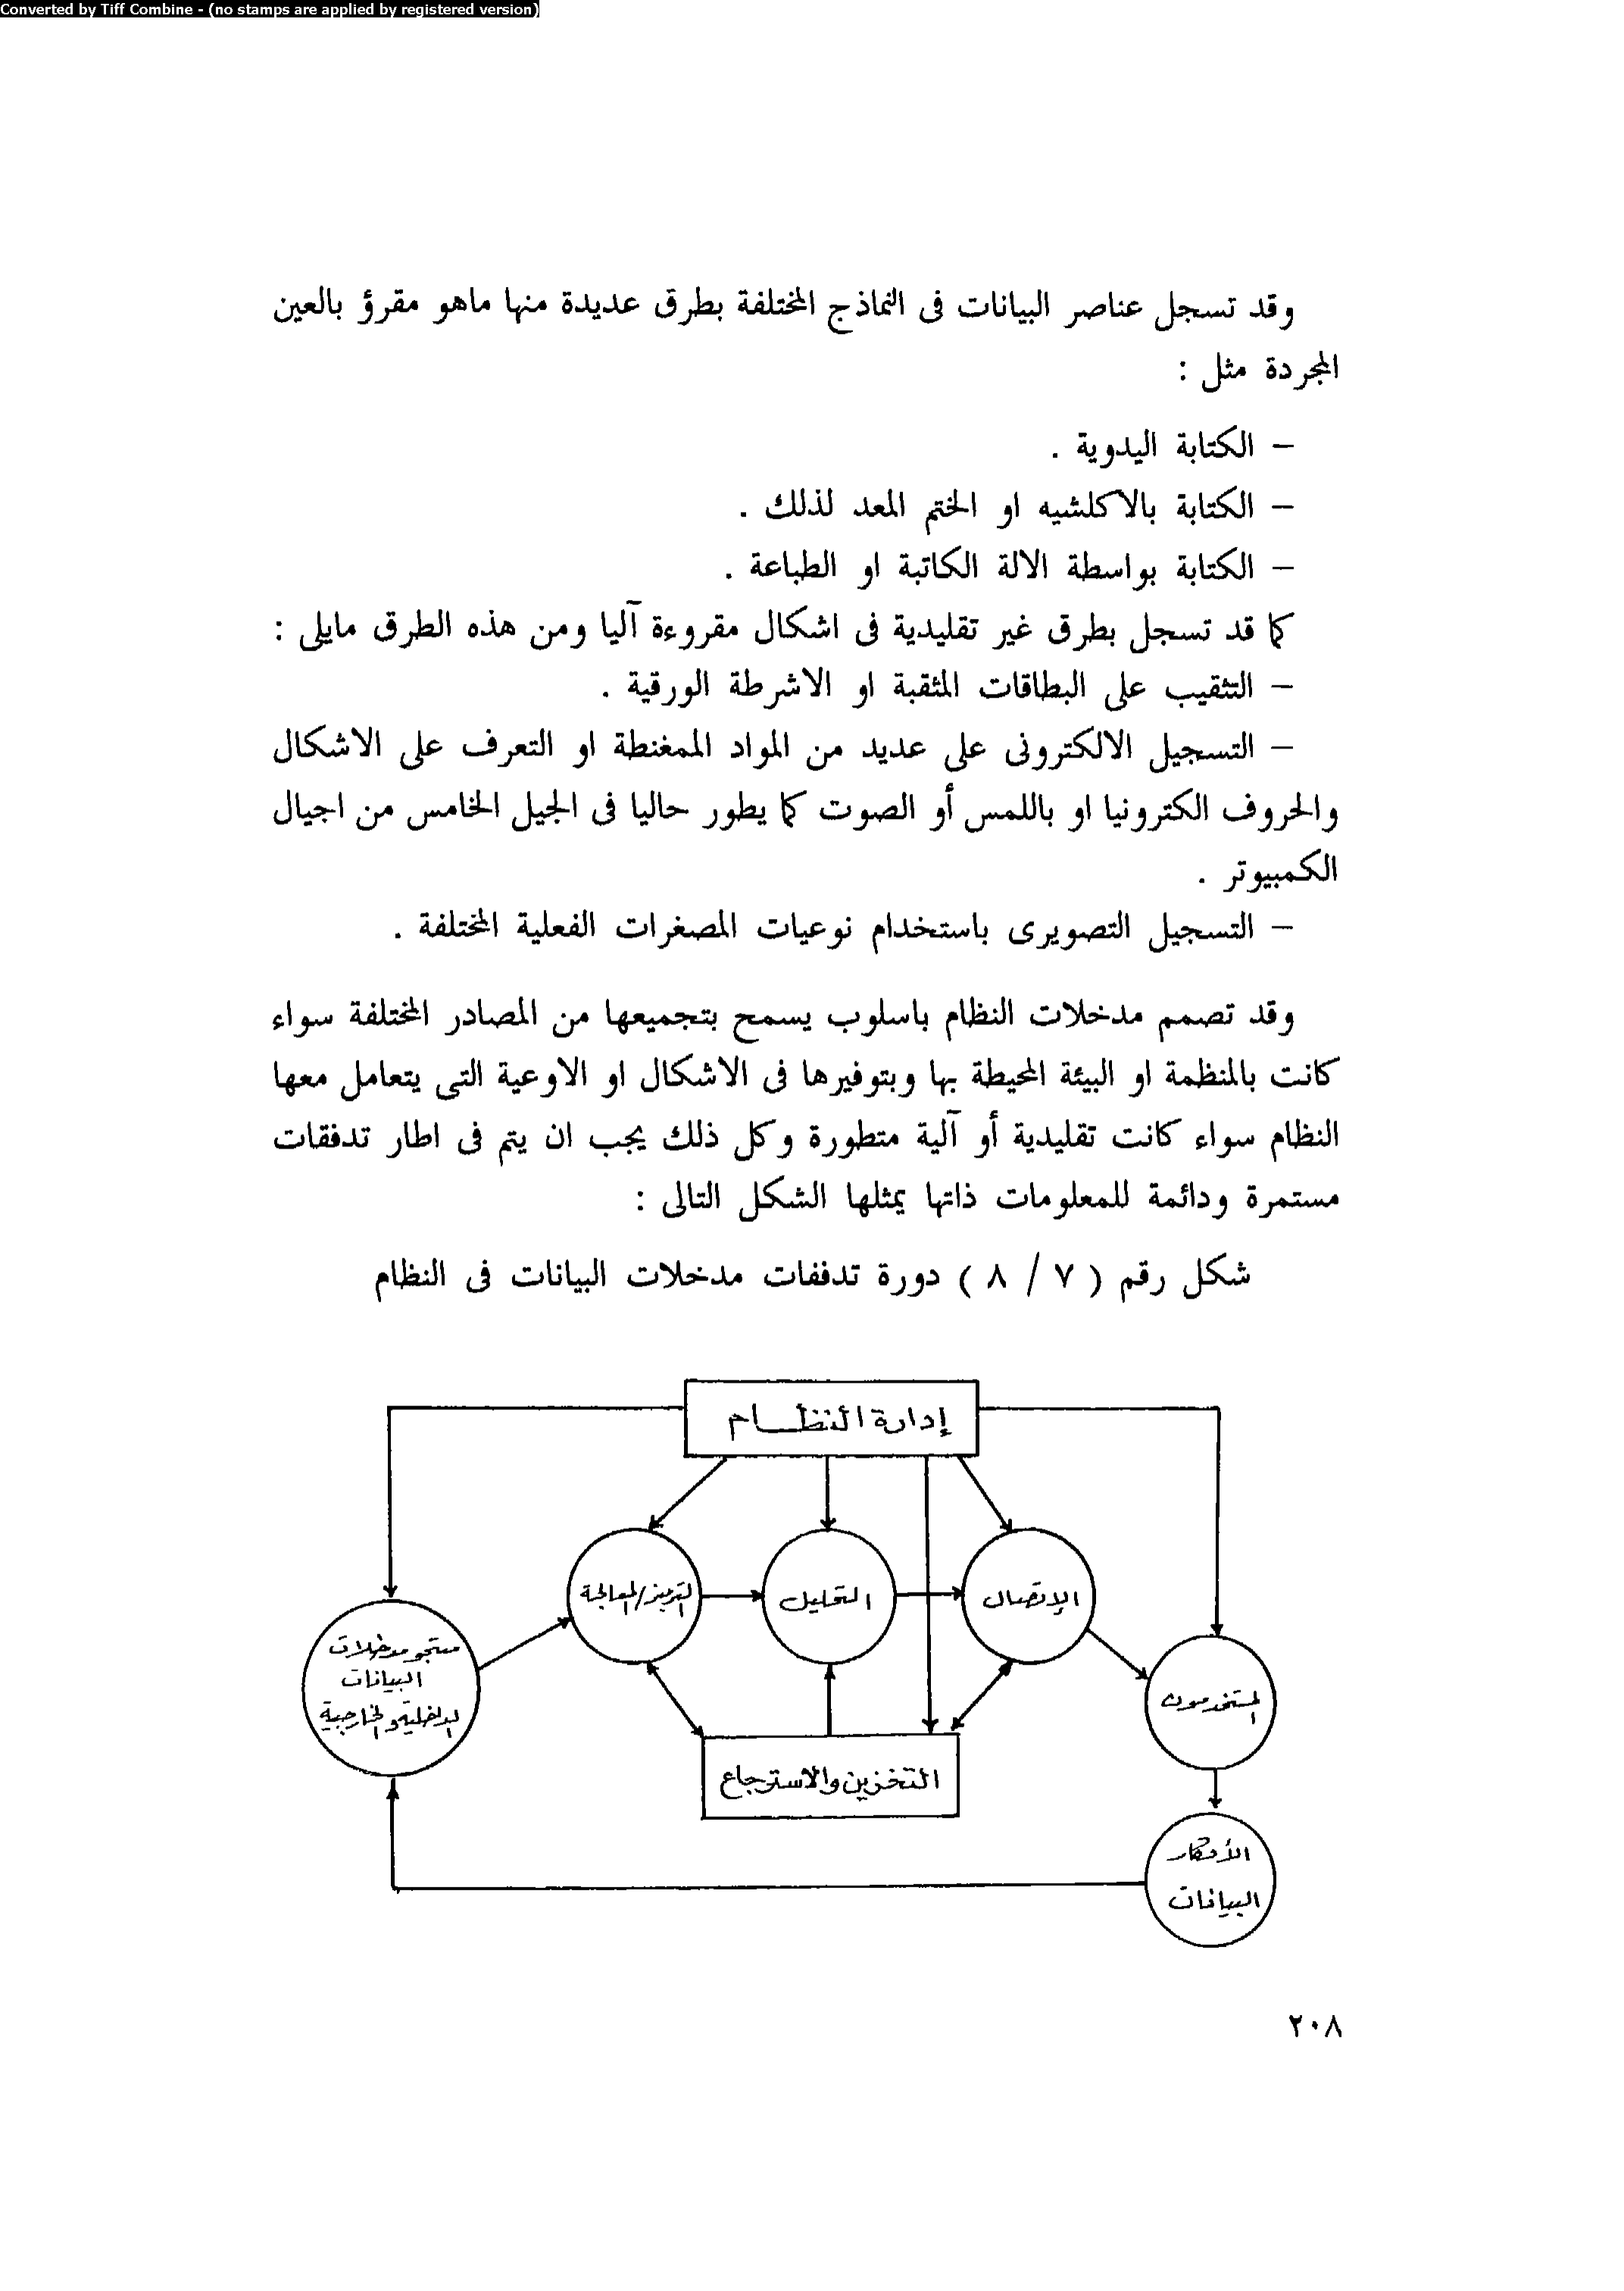 Converted by Tiff Combine - (no stamps are applied by registered version)
وقد تسجل عناصر البيانات فى النماذج المختلفة بطرق عديدة منها ماهو مقرؤ بالعين
المجردة مثل :
– الكتابة اليدوية .
– الكتابة بالاكلشيه او الختم المعد لذلك .
– الكتابة بواسطة الالة الكاتبة او الطباعة .
كما قد تسجل بطرق غير تقليدية فى اشكال مقروءة آليا ومن هذه الطرق مايلى :
– التثقيب على البطاقات المثقبة او الاشرطة الورقية .
– التسجيل الالكترونى على عديد من المواد الممغنطة او التعرف على الاشكال
والحروف الكترونيا او باللمس أو الصوت كما يطور حاليا فى الجيل الخامس من اجيال
الكمبيوتر .
– التسجيل التصويرى باستخدام نوعيات المصغرات الفعلية المختلفة .
وقد تصمم مدخلات النظام باسلوب يسمح بتجميعها من المصادر المختلفة سواء
كانت بالمنظمة او البيئة المحيطة بها وبتوفيرها فى الاشكال او الاوعية التى يتعامل معها
النظام سواء كانت تقليدية أو آلية متطورة وكل ذلك يجب ان يتم فى اطار تدفقات
مستمرة ودائمة للمعلومات ذاتها يمثلها الشكل التالى :
شكل رقم ( ٧ / ٨ ) دورة تدفقات مدخلات البيانات فى النظام
إدارة النظام
الإتصال
التحليل
الترميز/المعالجة
المستخدمون
منتجو مدخلات
البيانات
الداخلية والخارجية
التخزين والاسترجاع
الأفكار
البيانات
٢٠٨